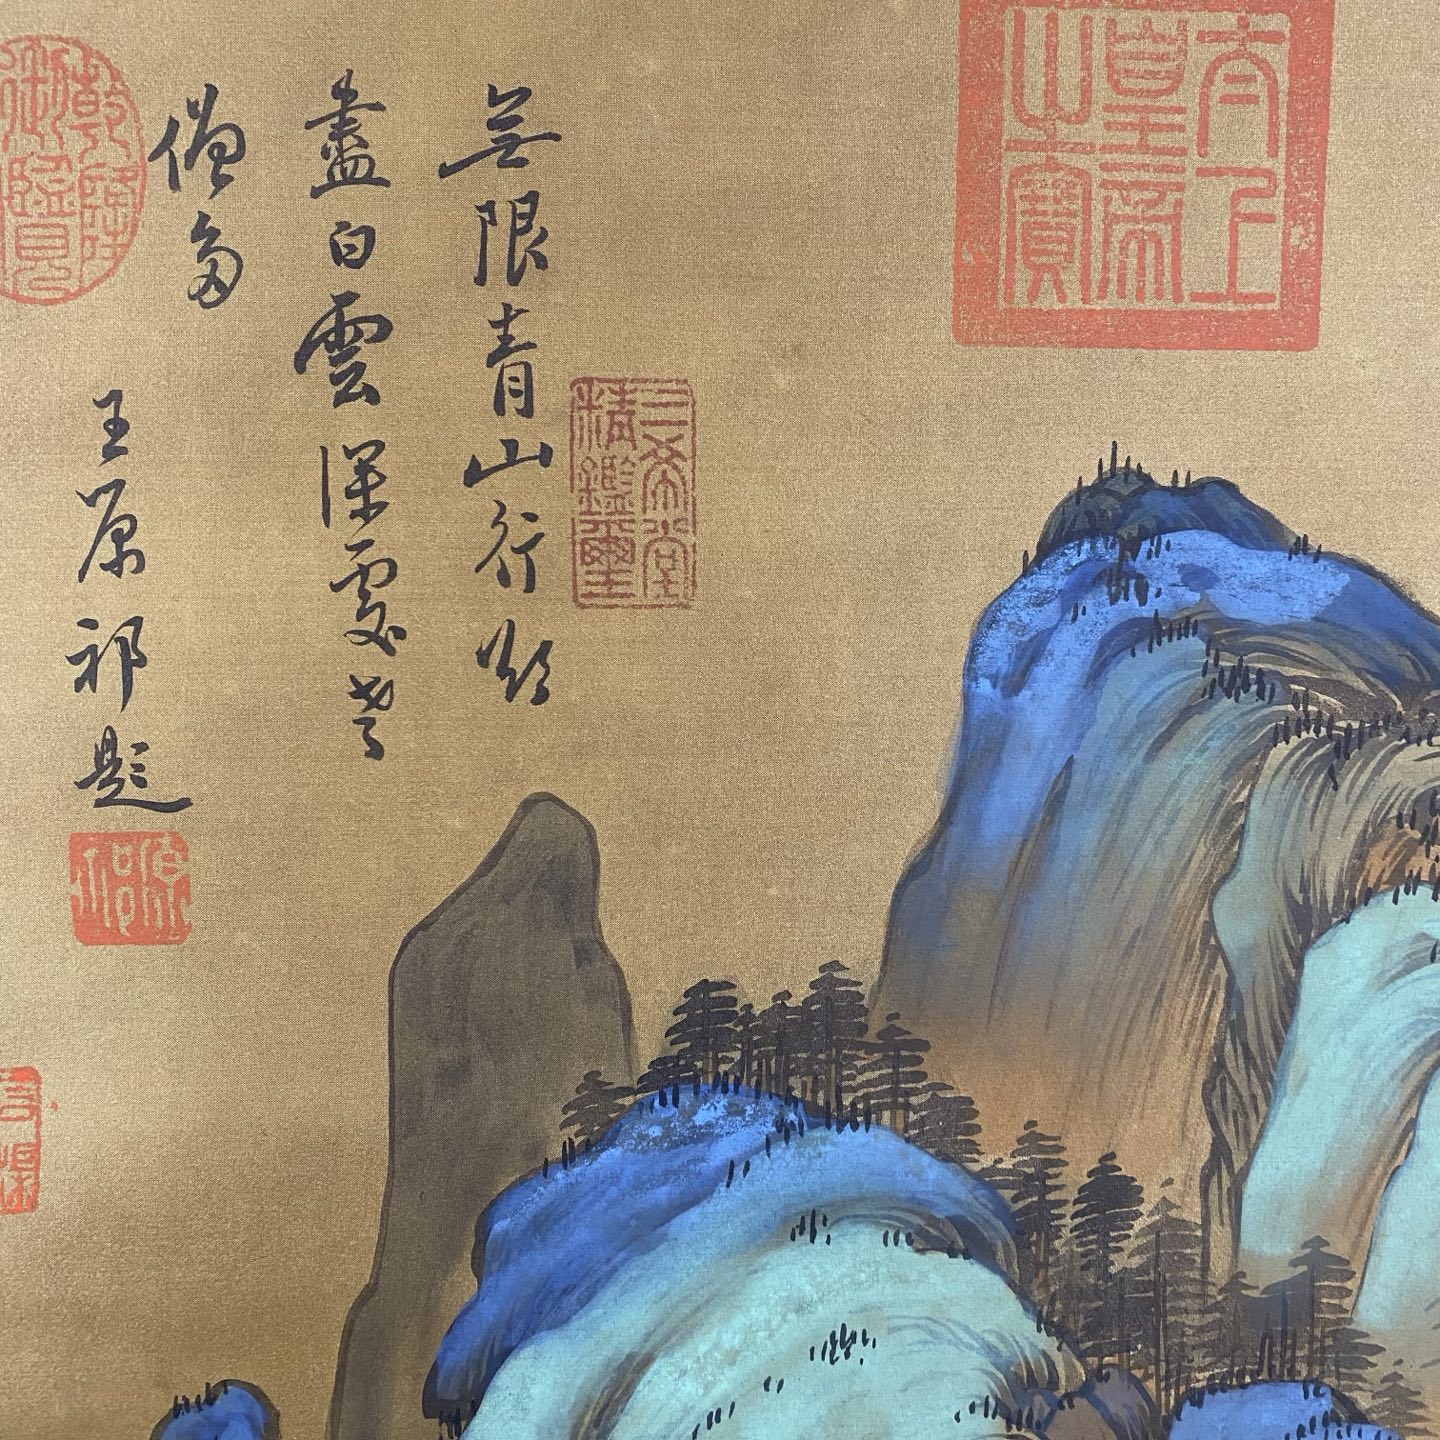 太上
皇帝
之寶
三希堂
精鑑璽
無限青山行欲
盡白雲深處老
僧多
王原祁題
乾隆
御覽